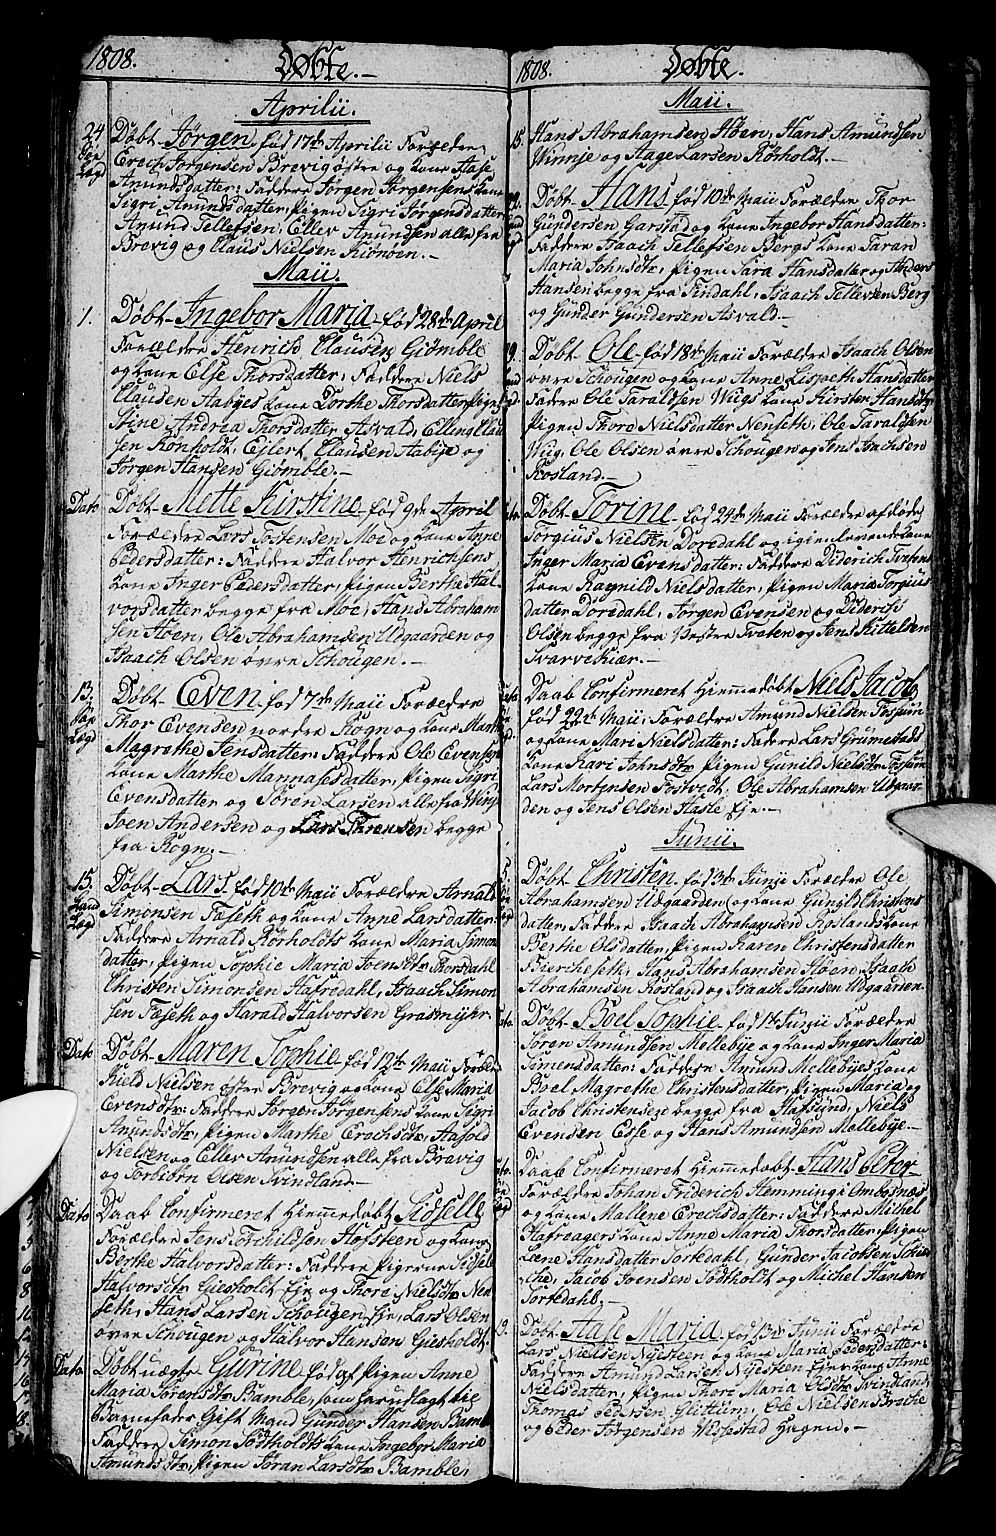 1808. Døbte.
Aprilii.
24 Døbt Jørgen, fød 17de Aprilii Forældre,
Erech Jørgensen Brevig østre og kone Aase
Amundsdatter: Faddere Jørgen Jørgensens kone
Sigri Amundsdatter, pigen Sigri Jørgensdatter
Amund Tellefsen, Ellev Amundsen alle fra
Brevig og Claus Nielsen Kiønøen.
Maii.
1. Døbt Ingebor Maria fød 28de April
Forældre Henrich Clausen Giømble
og kone Else Thorsdatter: Faddere Niels
Clausen Aabyes kone Dorthe Thorsdatter, pigen
Stine Andrea Thorsdatter Asvald, Elling Clau
sen Rønholdt, Ejlert Clausen Aabye og
Jørgen Hansen Giømble.
Dato Døbt Mette Kirstine fød 9de April
Forældre Lars Tostensen Moe og kone Anne
Pedersdatter: Faddere Halvor Henrichsens
kone Inger Pedersdatter, pigen Berthe Hal
vorsdatter begge fra Moe, Hans Abraham
sen Høen, Ole Abrahamsen Uldgaarden og
Isaach Olsen øvre Schougen.
13. Døbt Even fød 7de Maii Forældre
Thor Evensen nordre Rogn og kone Marthe
Magrethe Jensdatter: Faddere Ole Evensens
kone Marthe Mannasesdatter, pigen Sigri
Evensdatter og Søren Larsen alle fra
Sven Andersen og Lars begge
fra Rogn.
15. Døbt Lars fød 10de Maii Forældre Arnold
Simonsen Faseth og kone Anne Larsdatter:
Faddere Arnold Rørholdts kone Maria Simon
datter, pigen Sophie Maria Joensdtr Thorsdahl
Christen Simonsen Hafredahl, Isaach Simon
sen Faseth og Harald Halvorsen Grasmyhr.
Dato Døbt Maren Sophie fød 12te Maii Forældre
Kield Nielsen østre Brevig og kone Else Maria
Evensdtr: Faddere Jørgen Jørgensens kone Sigri
Amundsdtr, pigen Marthe Erechsdtr, Aasold
Nielsen og Ellev Amundsen alle fra Brevig
og Torbiørn Olsen Svindland.
Dato Daab Confirmeret hiemmedøbt Sidselle
Forældre Jens Torchildsen Hofsteen og kone
Berthe Halvorsdatter: Faddere Pigerne Sidsel
Halvorsdtr Giesholdt Eje og Thore Nielsdtr Nen
seth, Hans Larsen Schougen Eje, Lars Olsen
øvre Schougen og Halvor Hansen Giesholdt
Dato Døbt uægte Gurine fød af Pigen Anne
Maria Sørensdtr Bamble, som har udlagt til
Barnefader Gift Mand Gunder Hansen Bamble
Faddere Simon Sødtholdts kone Ingebor Maria
Amundsdtr, pigen Jøran Larsdtr Bamble,
1808. Døbte.
Maii.
15. Hans Abrahamsen Høen, Hans Amundsen
Winnje og Aage Larsen Rørholdt.
22. Døbt Hans fød 10de Maii Forældre Thor
Gundersen Garstad og kone Ingebor Hansdatter:
Faddere Isaach Tellefsen Bergs kone Taran
Maria Johnsdtr, pigen Sara Hansdatter og Anders
Hansen begge fra Findahl, Isaach Tellevsen Berg
og Gunder Gundersen Asvald.
29. Døbt Ole fød 18de Maii Forældre Isaach Olsen
øvre Schougen og kone Anne Lispeth Hansdatter
Faddere Ole Taraldsen Wugs kone Kirsten Hansdtr
Pigen Thore Nielsdatter Nenseth, Ole Taraldsen
Wug, Ole Olsen øvre Schougen og Jens Isachsen
Rosland.
Dato. Døbt Torine fød 24de Maii Forældre afdøde
Torgius Nielsen Dordahl og igienlevende kone
Inger Maria Evensdatter: Faddere Diderich Tvetens
kone Ragnild Nielsdatter, pigen Maria Torgius
datter Dordahl, Jørgen Evensen og Diderich
Olsen begge fra Vestre Tveten og Jens Kittelsen
Svarvekiær.
Dato. Daab Confirmeret Hiemmedøbt Niels Jacob
fød 22de Maii: Forældre Amund Nielsen Fossum
og kone Mari Nielsdatter: Faddere Lars Grumestads
kone Kari Johnsdtr Pigen Gunild Nielsdtr Fossum
Lars Mortensen Fosvidt, Ole Abrahamsen Uldgaar
den og Jens Olsen Haslee Eje.
Junii.
5. Døbt Christen fød 3de Junii Forældre Ole
Abrahamsen Uldgaarden og kone Gunild Christens
datter, Faddere Isaach Abrahamsen Roslands kone
Berthe Olsdatter, pigen Karen Christensdatter
Biercheseth, Hans Abrahamsen Høen, Isaach
Abrahamsen Rosland og Isaach Hansen Udgaarsen.
Dato. Døbt Boel Sophie fød 1te Junii Forældre
Søren Amundsen Mellebye og kone Inger Maria
Simensdatter: Faddere Amund Mellebyes kone
Boel Magrethe Christensdatter, pigen Maria og
Jacob Christensen begge fra Hafsund, Niels
Evensen Esse og Hans Amundsen Mellebye.
Dato. Daab Confirmeret Hiemmedøbt Hans Peter
Forældre Johan Friderich Hemming i Ombosnæs
og kone Mallene Erechsdatter: Faddere Michel
Hafreagers kone Anne Maria Thorsdatter, pigen
Leene Hansdatter Tortedahl, Gunder Jacobsen
Jacob Joensen Sødtholdt og Michel Hansen
Tortedahl.
19. Døbt Aase Maria fød 13de Junii Forældre
Lars Nielsen Nysteen og kone Maria Pedersdatter:
Faddere Amund Larsen Nysteen Ejes kone Anne
Nielsdatter, pigen Thori Maria Olsdtr Svindland
Thomas Pedersen Glittum, Ole Nielsen Brothe
og Peder Jørgensen Wissestad Hagen.